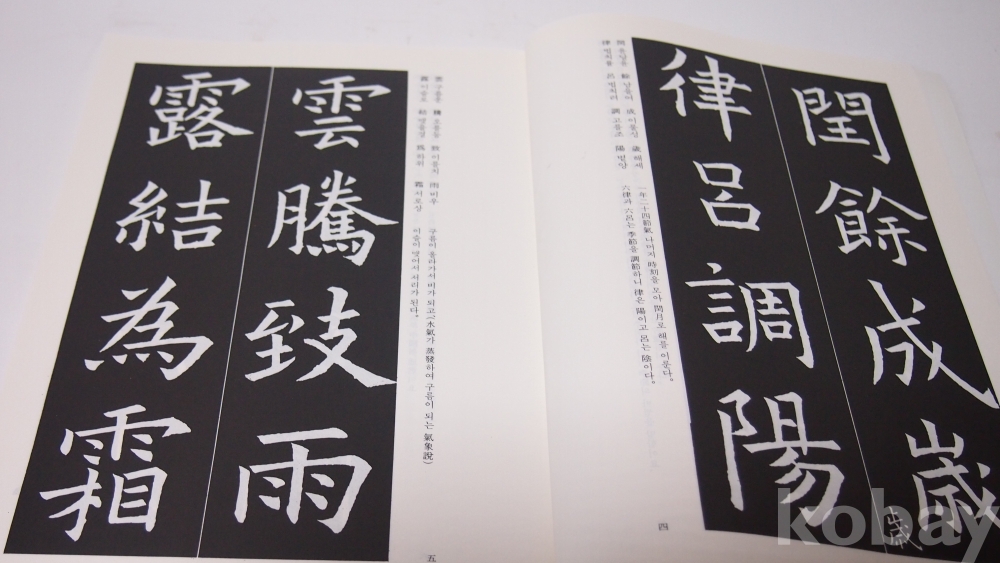 閏餘成歲
歲
律呂調陽
閏 윤달윤 餘 남을여 成 이룰성 歲 해세
律 법칙률 呂 법칙려 調 고를조 陽 볕양
一年二十四節氣 나머지 時刻을 모아 閏月로 해를 이룬다。
六律과 六呂는 季節을 調節하니 律은 陽이고 呂는 陰이다。
四
雲 구름운 騰 오를등 致 이를치 雨 비우
露 이슬로 結 맺을결 爲 하위 霜 서리상
구름이 올라가서 비가 되고(水氣가 蒸發하여 구름이 되는 氣象說)
이슬이 맺어서 서리가 된다。
雲騰致雨
露結為霜
五
kobay